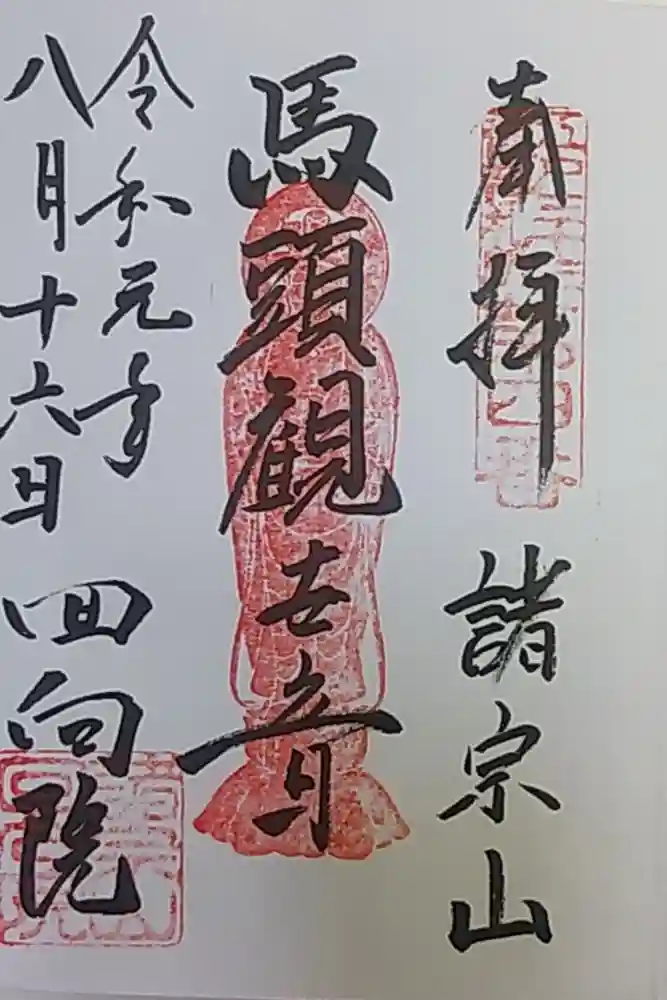 奉拝 諸宗山
馬頭觀世音
令和元年
八月十六日 回向院